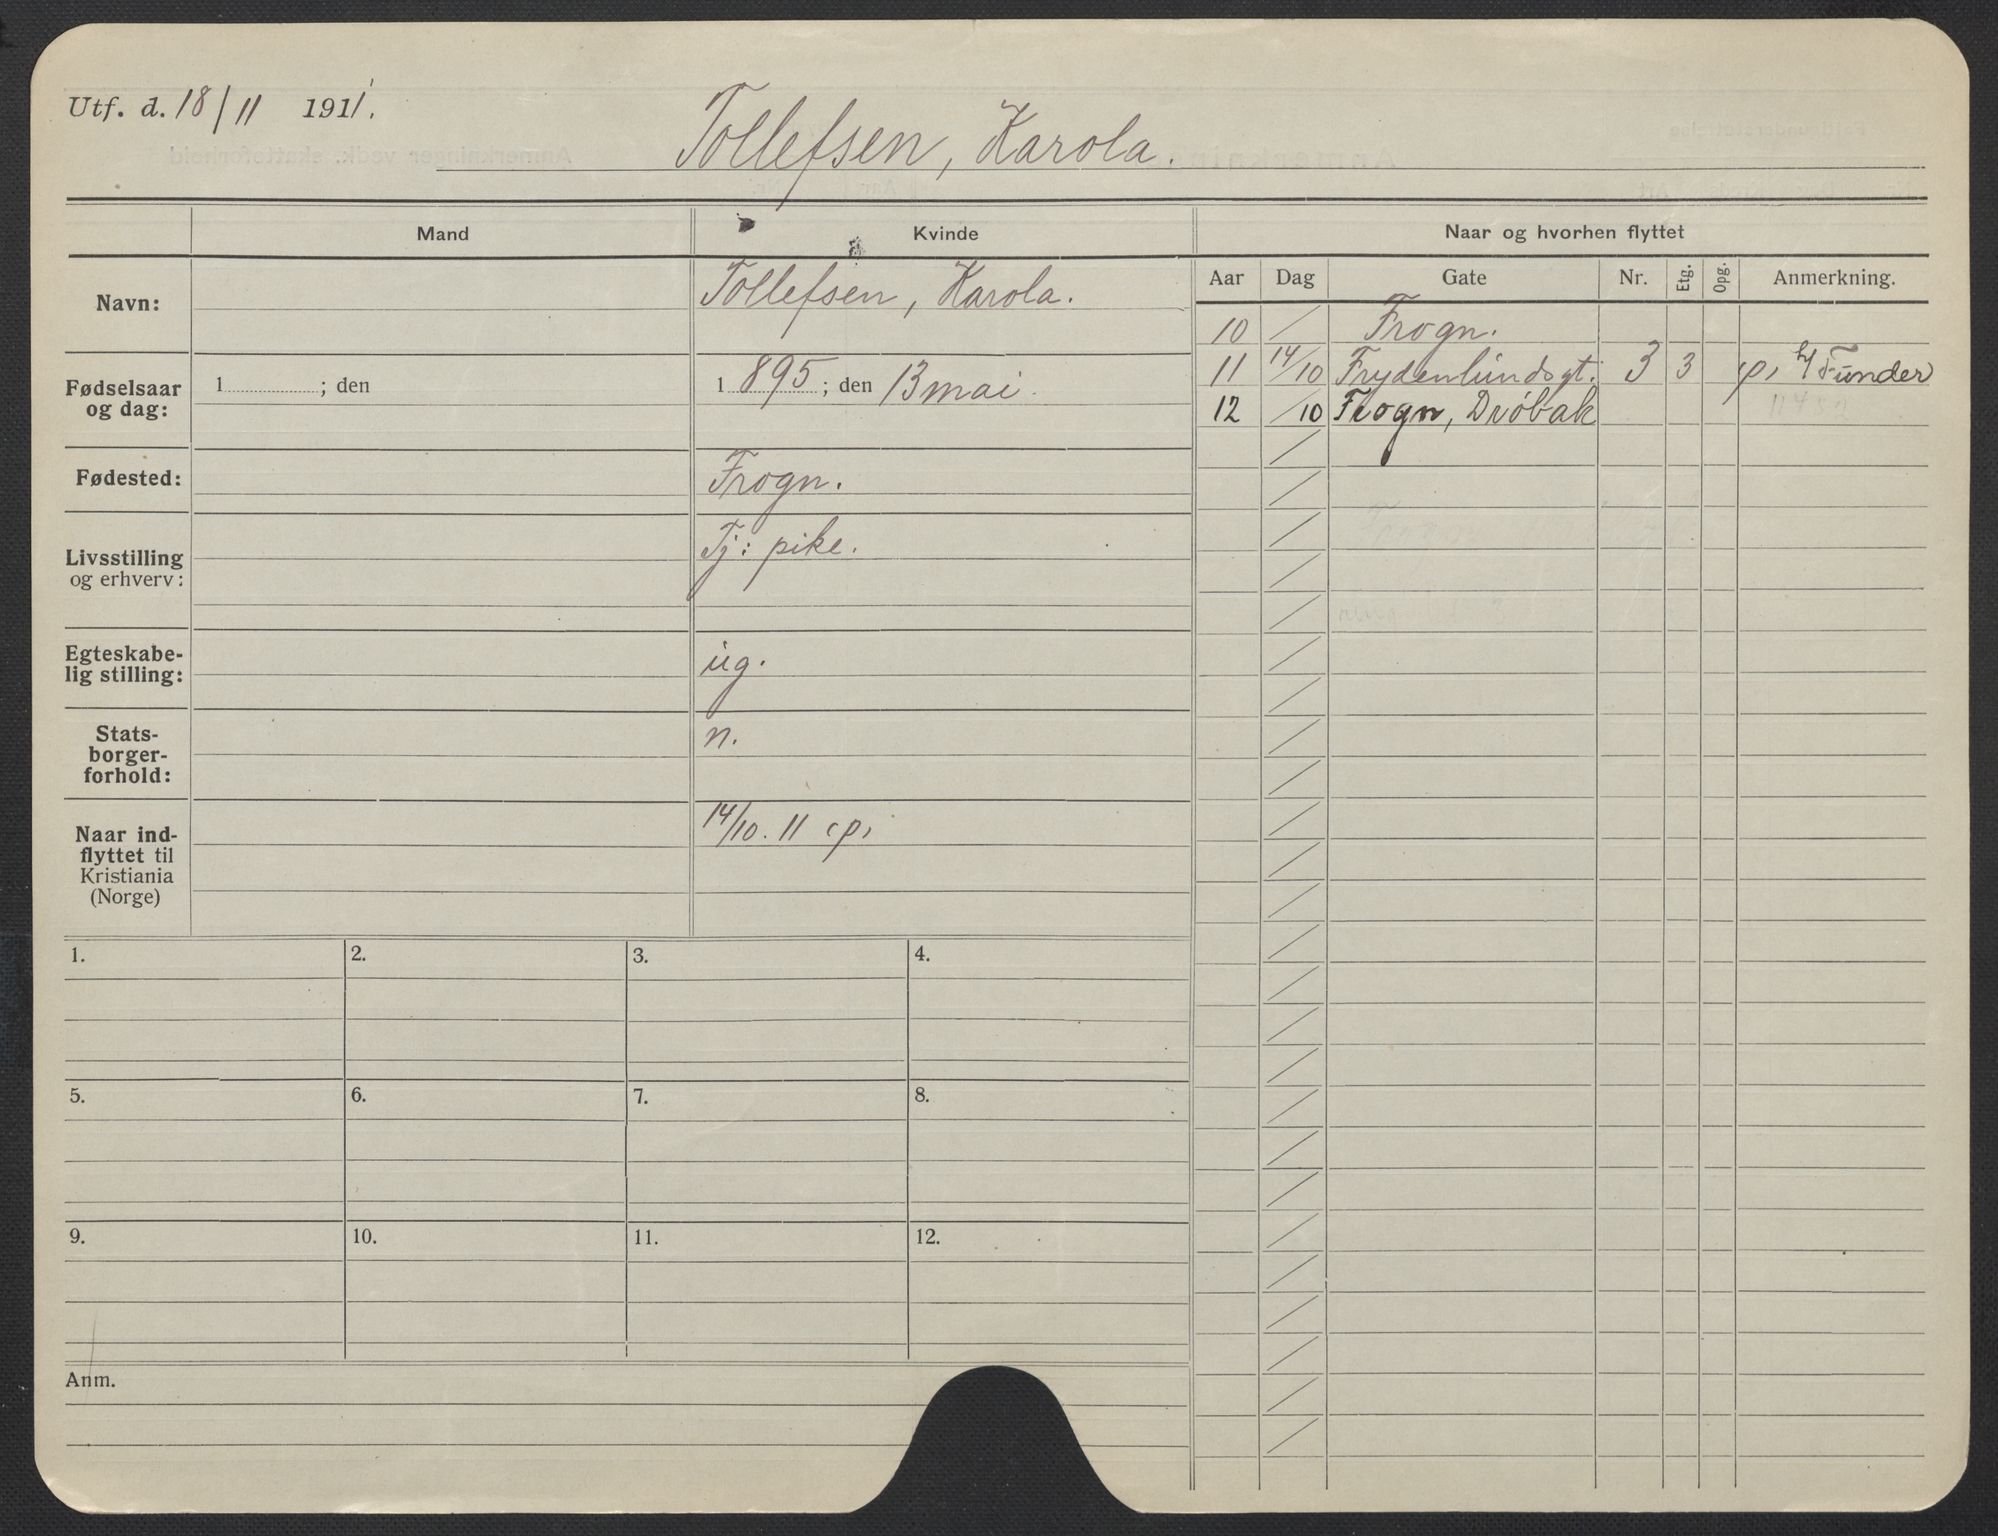 Utf. d. 18/11 1911.
Tollefsen, Karola.
Mand
Kvinde
Naar og hvorhen flyttet
Aar Dag Gate Nr. Etg. Opg. Anmerkning.
Navn:
Tollefsen, Karola.
10 / Frogn.
11 14/10 Frydenlundsgt. 3 3 p, h/ Funder
12 /10 Frogn, Drøbak
Fødselsaar
og dag:
1 ; den
1 895 ; den 13 mai.
Fødested:
Frogn.
Livsstilling
og erhverv:
Tj: pike.
Egteskabe-
lig stilling:
ug.
Stats-
borger-
forhold:
n.
Naar ind-
flyttet til
Kristiania
(Norge)
14/10. 11 p,
1. 2. 3. 4.
5. 6. 7. 8.
9. 10. 11. 12.
Anm.